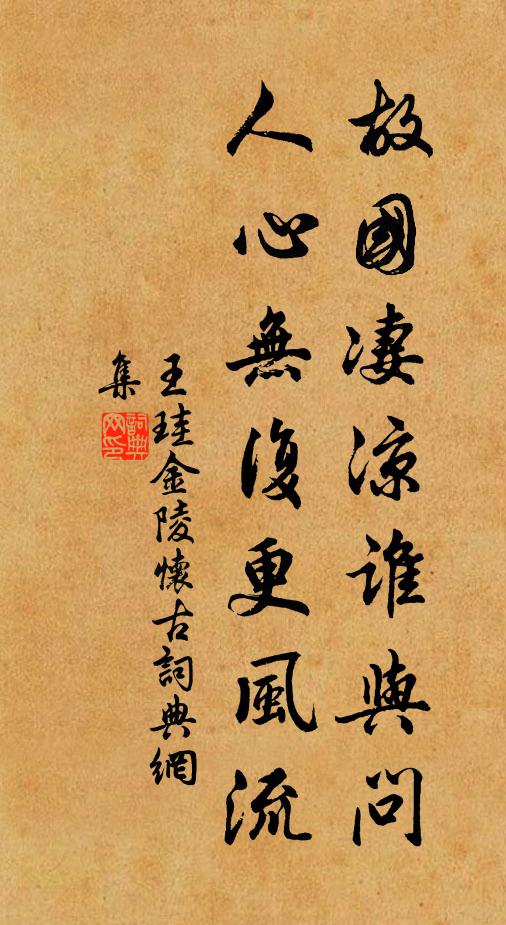 故國凄涼誰與問
人心無復更風流
王珪金陵懷古詞典網
集
詞典
网印